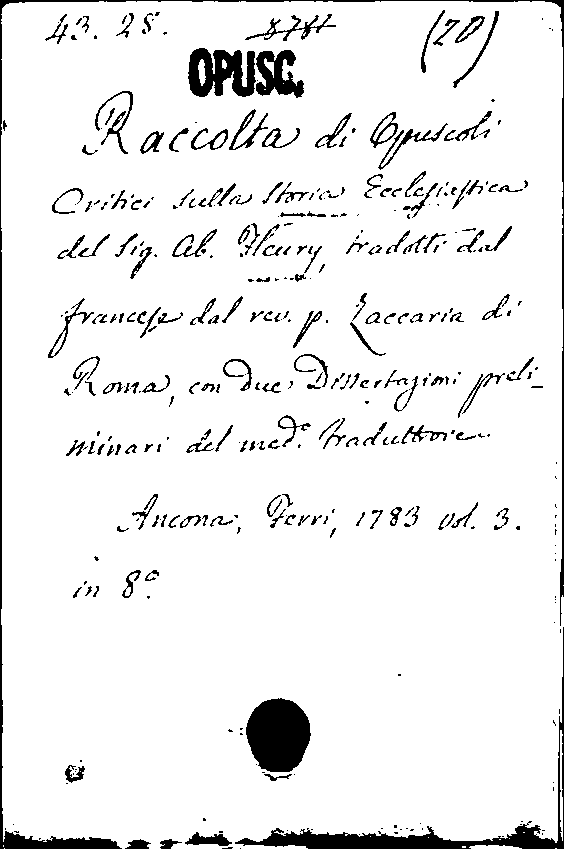 43. 28. 8781 (20)
OPUSC.
Raccolta di Opuscoli
Critici sulla Storia Ecclesiastica
del Sig. Ab. Fleury, tradotti dal
francese dal rev. p. Zaccaria di
Roma, con due Dissertazioni preli-
minari del med.º traduttore.
Ancona, Ferri, 1783 vol. 3.
in 8º